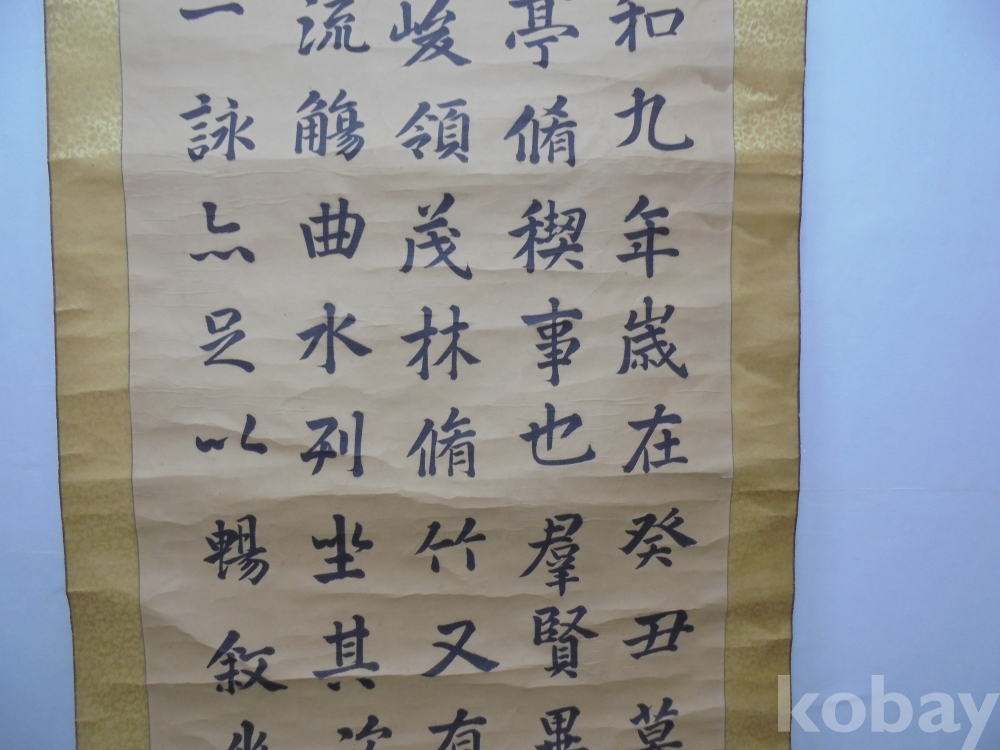 和九年歲在癸丑暮
亭脩稧事也羣賢畢
峻領茂林脩竹又有
流觴曲水列坐其次
一詠亦足以暢敘幽
kobay